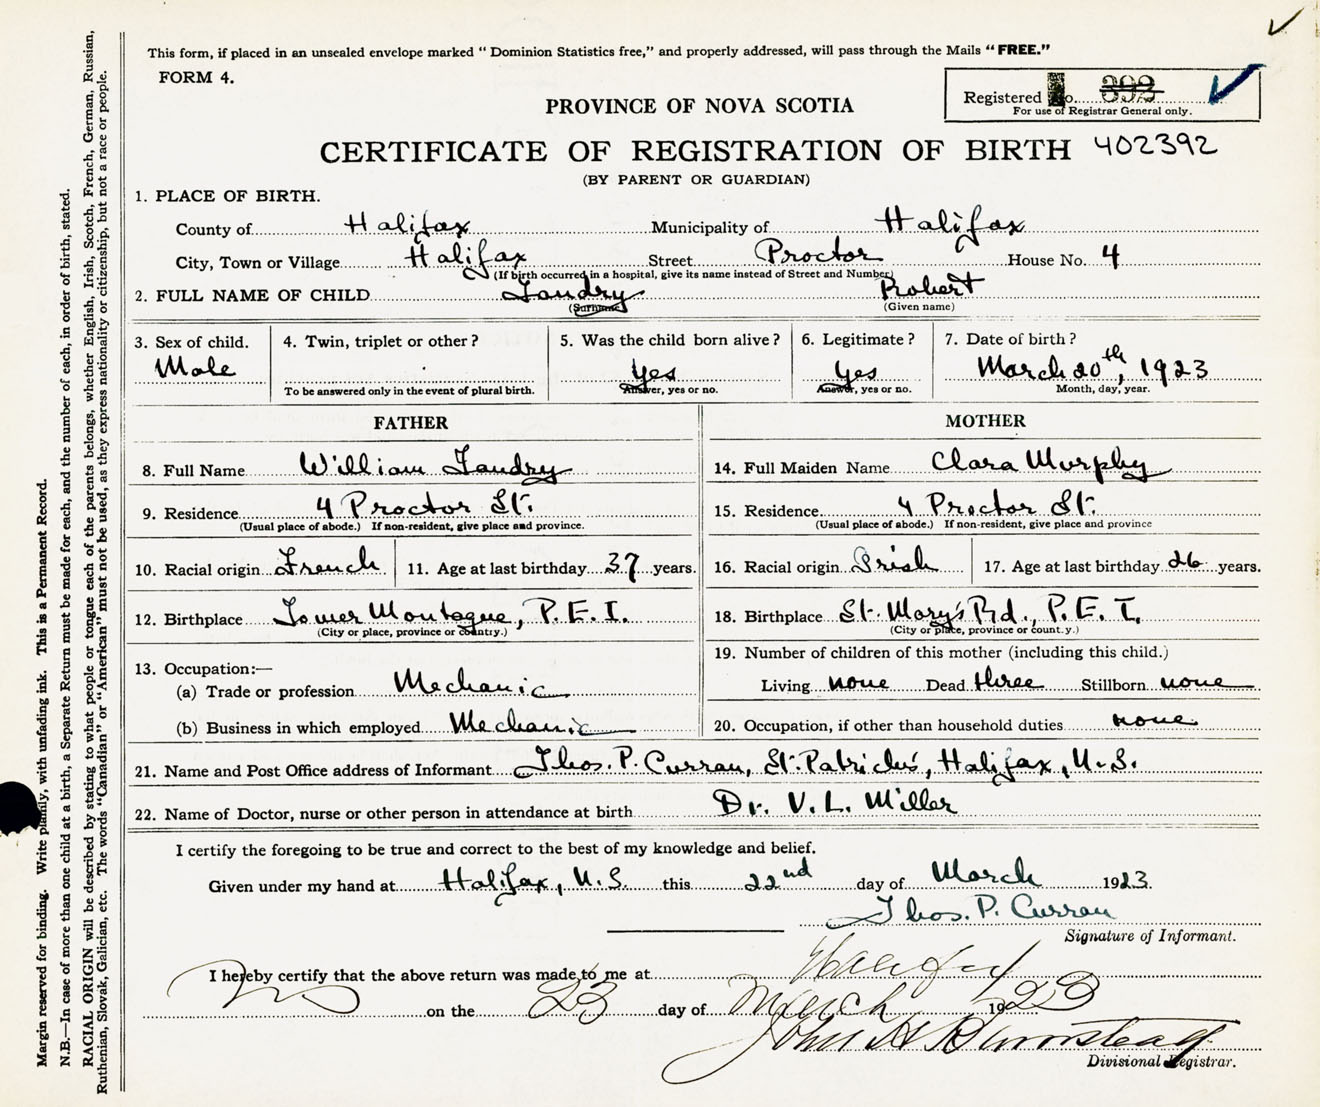 This form, if placed in an unsealed envelope marked “Dominion Statistics free,” and properly addressed, will pass through the Mails “FREE.”
FORM 4.
Registered No. 392
For use of Registrar General only.
PROVINCE OF NOVA SCOTIA
CERTIFICATE OF REGISTRATION OF BIRTH 402392
(BY PARENT OR GUARDIAN)
1. PLACE OF BIRTH.
County of Halifax Municipality of Halifax
City, Town or Village Halifax Street Proctor House No. 4
(If birth occurred in a hospital, give its name instead of Street and Number)
2. FULL NAME OF CHILD Landry Robert
(Surname) (Given name)
3. Sex of child. Male
4. Twin, triplet or other?
To be answered only in the event of plural birth.
5. Was the child born alive? Yes
Answer, yes or no.
6. Legitimate? Yes
Answer, yes or no.
7. Date of birth? March 20th, 1923
Month, day, year.
FATHER
8. Full Name William Landry
9. Residence 4 Proctor St.
(Usual place of abode.) If non-resident, give place and province.
10. Racial origin French 11. Age at last birthday 37 years.
12. Birthplace Lower Montague, P.E.I.
(City or place, province or country.)
13. Occupation:—
(a) Trade or profession Mechanic
(b) Business in which employed Mechanic
MOTHER
14. Full Maiden Name Clara Murphy
15. Residence 4 Proctor St.
(Usual place of abode.) If non-resident, give place and province
16. Racial origin Irish 17. Age at last birthday 26 years.
18. Birthplace St. Mary's Rd., P.E.I.
(City or place, province or count.y.)
19. Number of children of this mother (including this child.)
Living none Dead three Stillborn none
20. Occupation, if other than household duties none
21. Name and Post Office address of Informant Thos. P. Curran, St. Patrick's, Halifax, N.S.
22. Name of Doctor, nurse or other person in attendance at birth Dr. V. L. Miller
I certify the foregoing to be true and correct to the best of my knowledge and belief.
Given under my hand at Halifax, N.S. this 22nd day of March 1923.
Thos. P. Curran
Signature of Informant.
I hereby certify that the above return was made to me at Halifax
NS on the 23 day of March 1923
John A
Divisional Registrar.
Margin reserved for binding. Write plainly, with unfading ink. This is a Permanent Record.
N.B.—In case of more than one child at a birth, a Separate Return must be made for each, and the number of each, in order of birth, stated.
RACIAL ORIGIN will be described by stating to what people or tongue each of the parents belongs, whether English, Irish, Scotch, French, German, Russian,
Ruthenian, Slovak, Galician, etc. The words “Canadian” or “American” must not be used, as they express nationality or citizenship, but not a race or people.